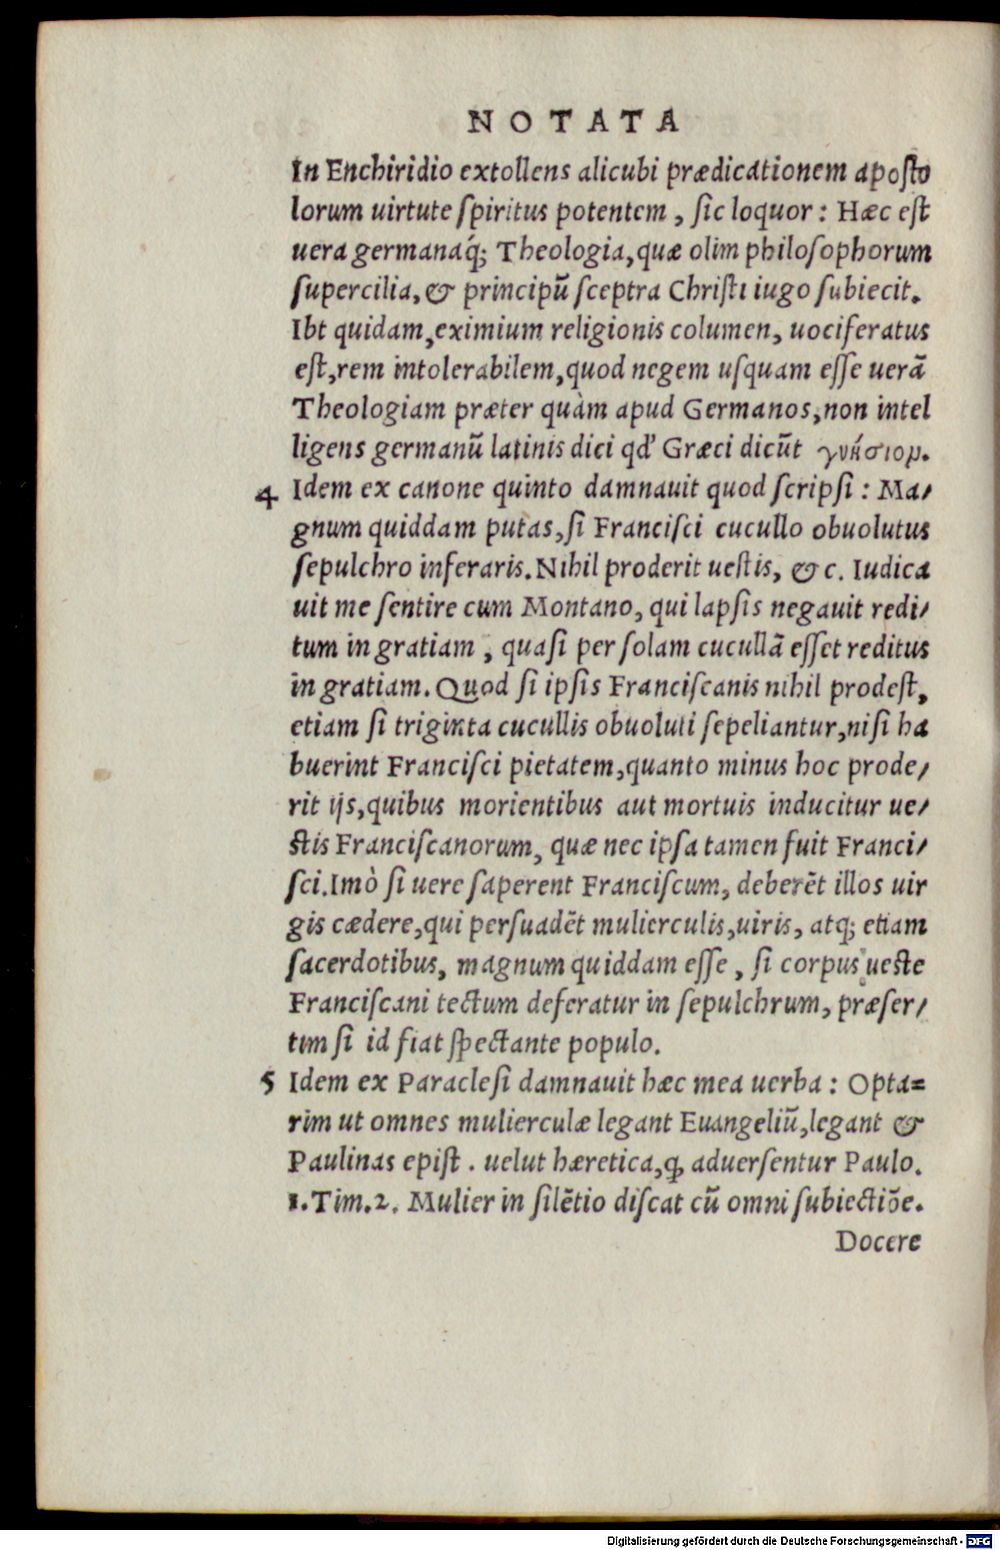 NOTATA
In Enchiridio extollens alicubi prædicationem aposto
lorum uirtute spiritus potentem, sic loquor: Hæc est
uera germanaq́; Theologia, quæ olim philosophorum
supercilia, & principũ sceptra Christi iugo subiecit.
Ibi quidam, eximium religionis columen, uociferatus
est, rem intolerabilem, quod negem usquam esse uerã
Theologiam præter quàm apud Germanos, non intel
ligens germanũ latinis dici qd' Græci dicũt γνήσιον.
4 Idem ex canone quinto damnauit quod scripsi: Ma/
gnum quiddam putas, si Francisci cucullo obuolutus
sepulchro inferaris. Nihil proderit uestis, & c. Iudica
uit me sentire cum Montano, qui lapsis negauit redi/
tum in gratiam, quasi per solam cucullã esset reditus
in gratiam. Quod si ipsis Franciscanis nihil prodest,
etiam si triginta cucullis obuoluti sepeliantur, nisi ha
buerint Francisci pietatem, quanto minus hoc prode/
rit ijs, quibus morientibus aut mortuis inducitur ue/
stis Franciscanorum, quæ nec ipsa tamen fuit Franci/
sci. Imò si uere saperent Franciscum, deberẽt illos uir
gis cædere, qui persuadẽt mulierculis, uiris, atq; etiam
sacerdotibus, magnum quiddam esse, si corpus ueste
Franciscani tectum deferatur in sepulchrum, præser/
tim si id fiat spectante populo.
5 Idem ex Paraclesi damnauit hæc mea uerba: Opta=
rim ut omnes mulierculæ legant Euangeliũ, legant &
Paulinas epist. uelut hæretica, ꝙ aduersentur Paulo.
1. Tim. 2. Mulier in silẽtio discat cũ omni subiectiõe.
Docere
Digitalisierung gefördert durch die Deutsche Forschungsgemeinschaft - DFG